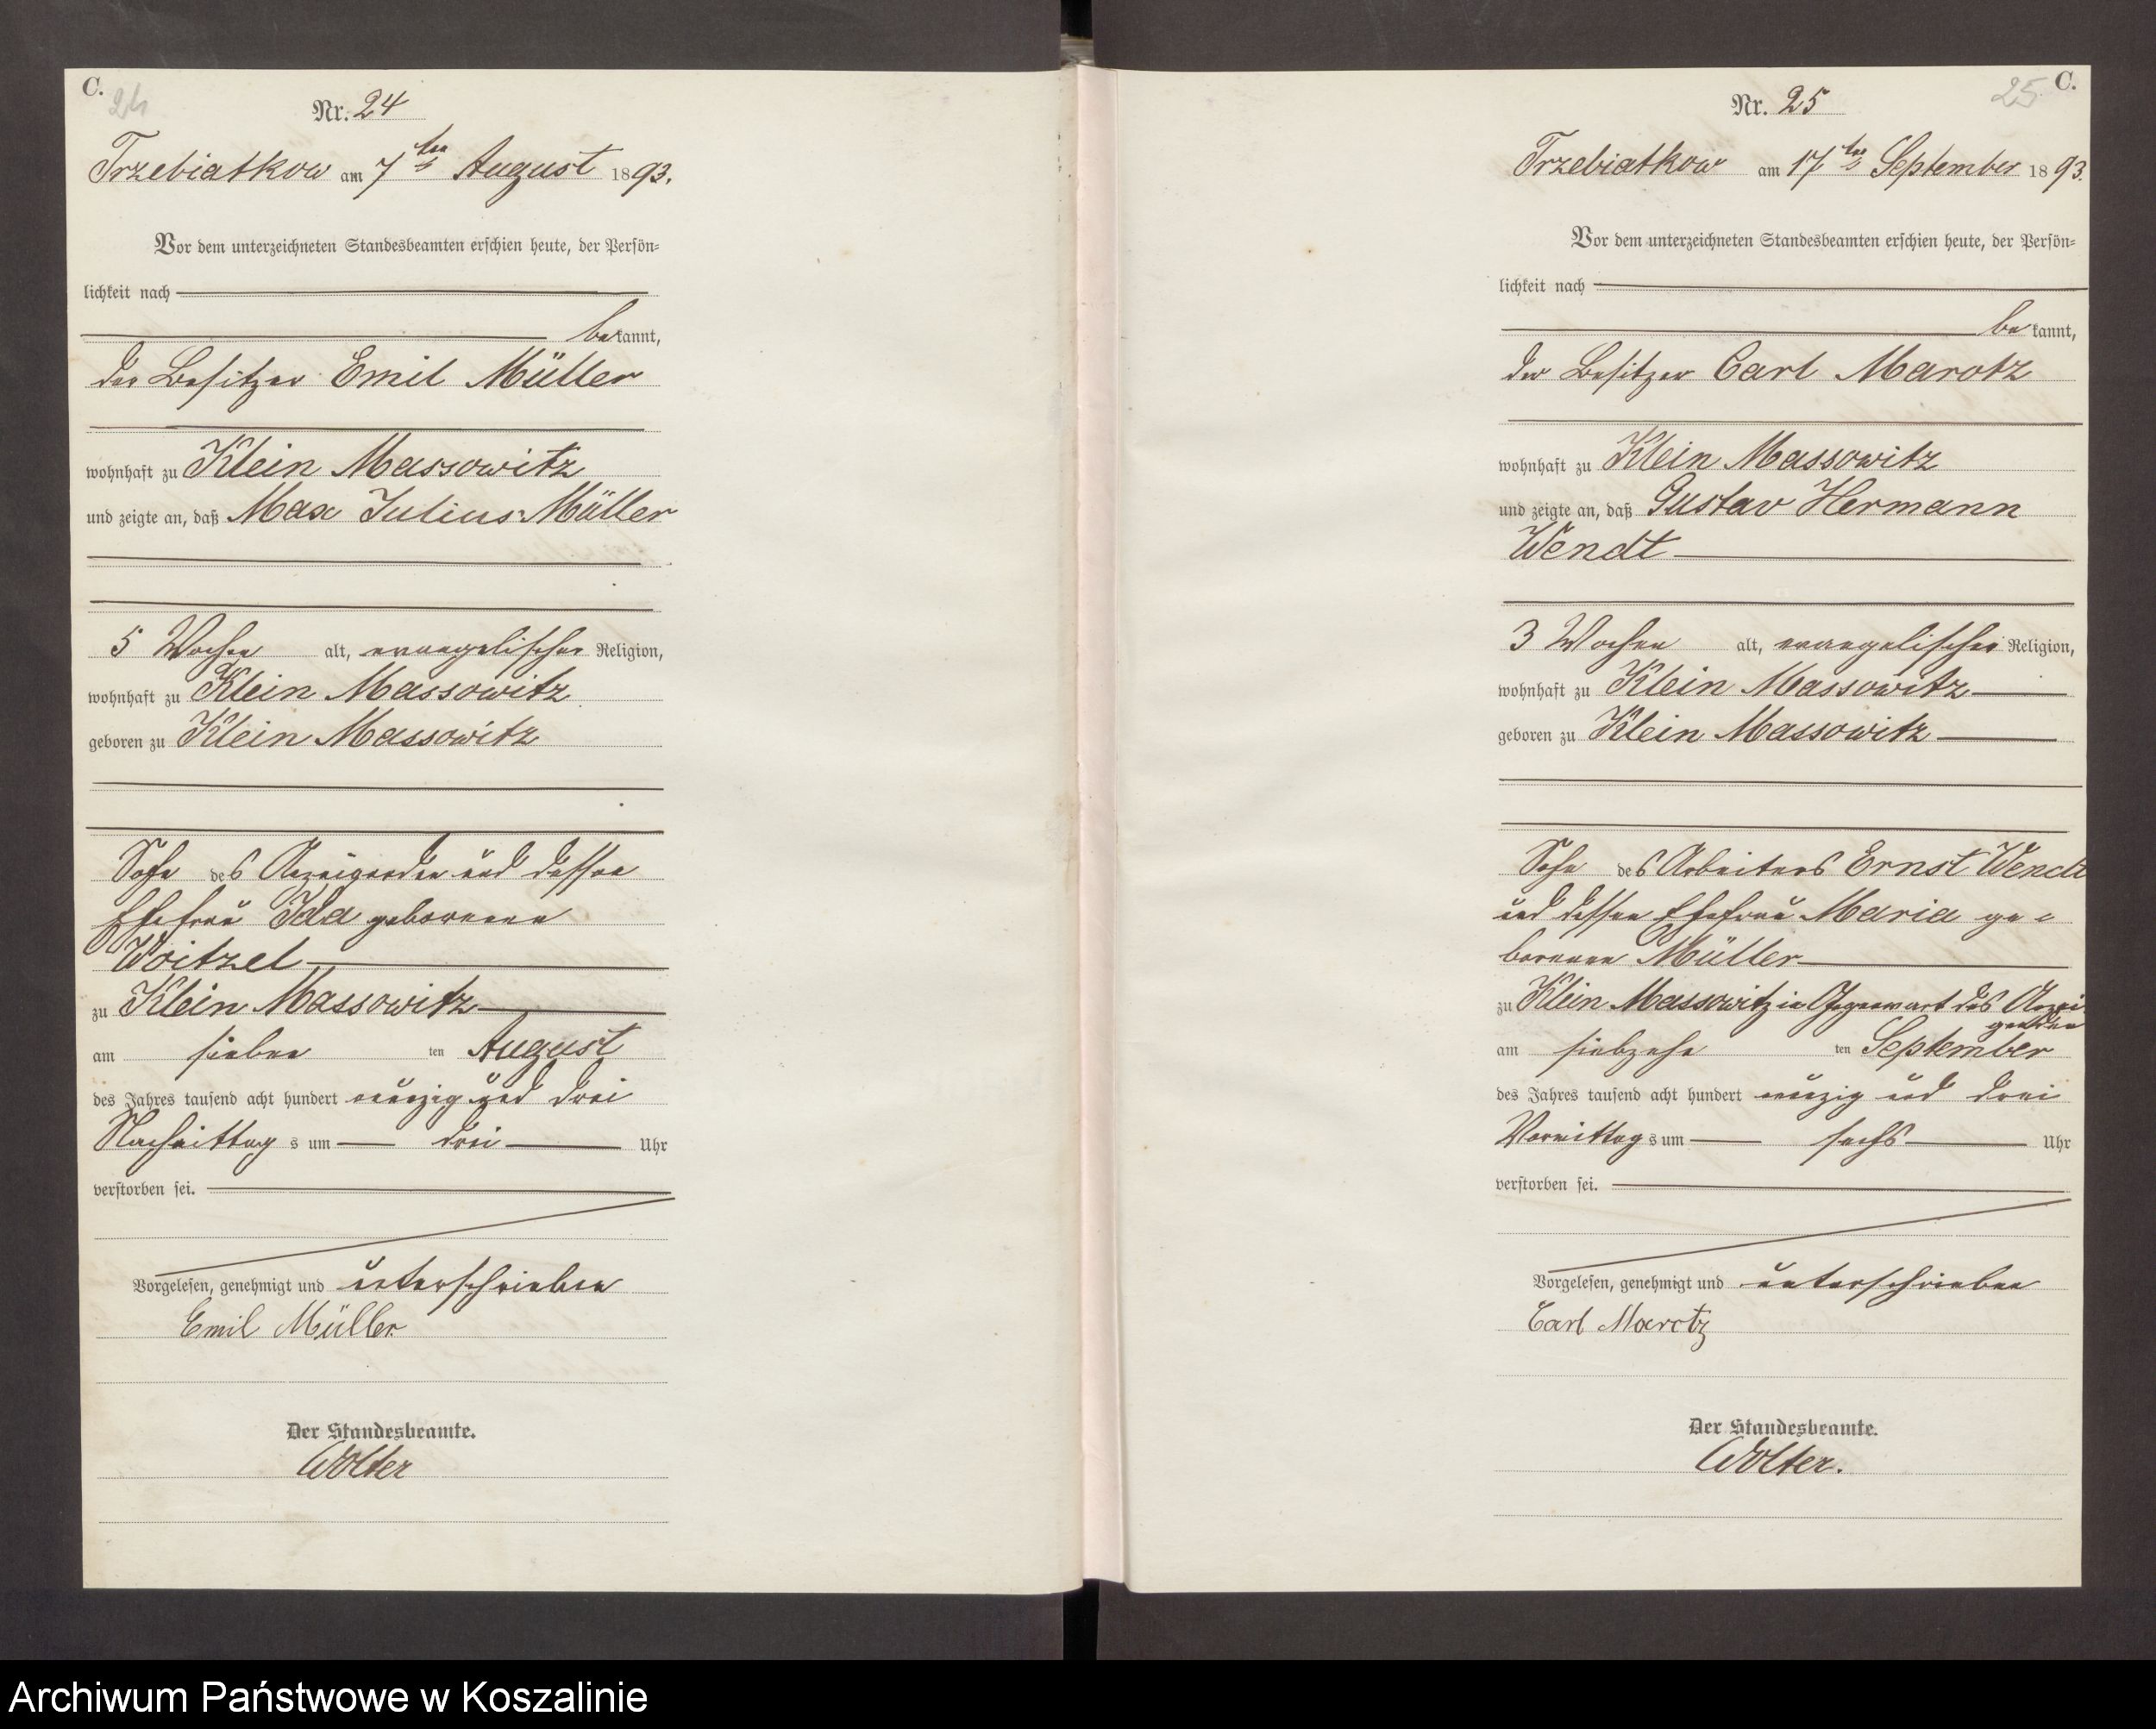 C.
24
Nr. 24
Trzebiatkow am 7ten August 1893.
Vor dem unterzeichneten Standesbeamten erschien heute, der Persön-
lichkeit nach
bekannt,
der Besitzer Emil Müller
wohnhaft zu Klein Massowitz
und zeigte an, daß Max Julius Müller
5 Wochen alt, evangelischer Religion,
wohnhaft zu Klein Massowitz
geboren zu Klein Massowitz
Sohn des Anzeigenden und dessen
Ehefrau Ida geborenen
Woitzel
zu Klein Massowitz
am sieben ten August
des Jahres tausend acht hundert neunzig und drei
Nachmittags um drei Uhr
verstorben sei.
Vorgelesen, genehmigt und unterschrieben
Emil Müller
Der Standesbeamte.
Wolter
25 C.
Nr. 25
Trzebiatkow am 17ten September 1893.
Vor dem unterzeichneten Standesbeamten erschien heute, der Persön-
lichkeit nach
bekannt,
der Besitzer Carl Marotz
wohnhaft zu Klein Massowitz
und zeigte an, daß Gustav Hermann
Wendt
3 Wochen alt, evangelischer Religion,
wohnhaft zu Klein Massowitz
geboren zu Klein Massowitz
Sohn des Arbeiters Ernst Wendt
und dessen Ehefrau Maria ge-
borenen Müller
zu Klein Massowitz in Gegenwart des Anzei
genden
am siebzehn ten September
des Jahres tausend acht hundert neunzig und drei
Vormittags um sechs Uhr
verstorben sei.
Vorgelesen, genehmigt und unterschrieben
Carl Marotz
Der Standesbeamte.
Wolter.
Archiwum Państwowe w Koszalinie